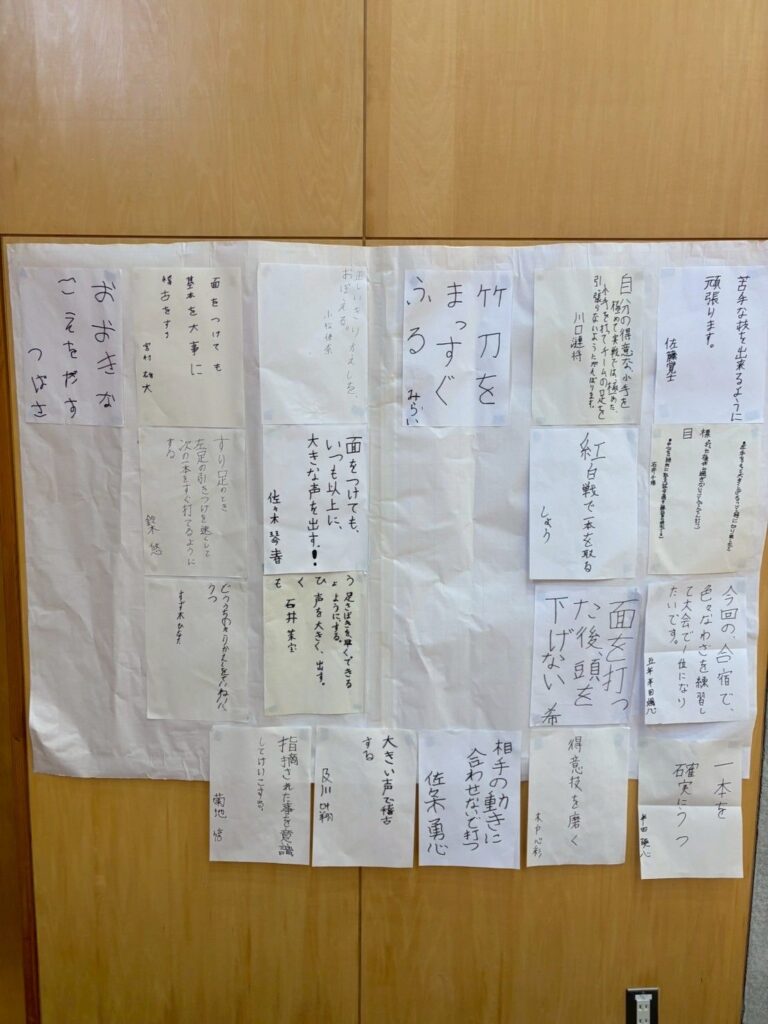 苦手な技を出来るように
頑張ります。
佐藤
自分の得意な、小手を
極めて実戦では、極めた
小手を打てチームの足を
引っ張りないようにがんばります。
川口
竹刀を
まっすぐ
ふる
みらい
正しいきりかえしを、
おぼえる。
面をつけても
基本を大事に
稽古をする
おおきな
こえをだす
つばさ
目
紅白戦で一本を取る
しょう
面をつけても、
いつも以上に、
大きな声を出す。!
佐々木 琴
すり足のとき、
左足の引きつけを速くして
次の一本をすぐ打てるように
する
鈴木 悠
今回の、合宿で、
色々なわざを練習し
て大会で1位になり
たいです。
面を打っ
た後、頭を
下げない
希
足さばきを早くできる
ようにする。
声を大きく、出す。
石井
一本を
確実にうつ
半田
得意技を磨く
木戸 心彩
相手の動きに
合わせないで打つ
佐久 勇心
大きい声で稽古
する
及川
指摘された事を意識
してけいこする。
菊地 悠